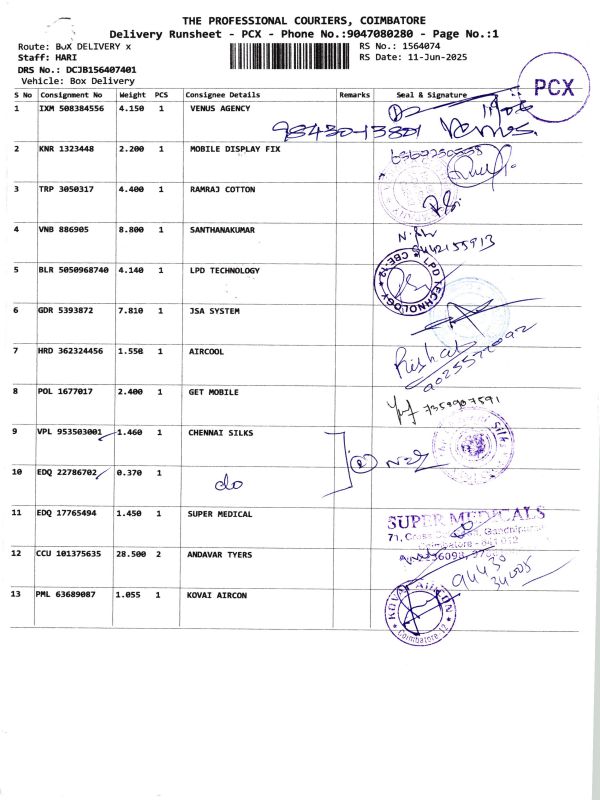 THE PROFESSIONAL COURIERS, COIMBATORE
Delivery Runsheet - PCX - Phone No.:9047080280 - Page No.:1
Route: BOX DELIVERY x
RS No.: 1564074
Staff: HARI
RS Date: 11-Jun-2025
DRS No.: DCJB156407401
Vehicle: Box Delivery
PCX
S No Consignment No Weight PCS Consignee Details Remarks Seal & Signature
1 IXM 508384556 4.150 1 VENUS AGENCY
98430-13801 Venus.
2 KNR 1323448 2.200 1 MOBILE DISPLAY FIX
3 TRP 3050317 4.400 1 RAMRAJ COTTON
4 VNB 886905 8.800 1 SANTHANAKUMAR
9442155913
5 BLR 5050968740 4.140 1 LPD TECHNOLOGY
LPD TECHNOLOGY CBE-12
6 GDR 5393872 7.810 1 JSA SYSTEM
7 HRD 362324456 1.550 1 AIRCOOL
8 POL 1677017 2.400 1 GET MOBILE
7359907591
9 VPL 953503001 1.460 1 CHENNAI SILKS
Silks
10 EDQ 22786702 0.370 1 do
11 EDQ 17765494 1.450 1 SUPER MEDICAL
SUPER MEDICALS
71, Cross Gandhipuram
Coimbatore - 641 012
12 CCU 101375635 28.500 2 ANDAVAR TYERS
94430
34005
13 PML 63689087 1.055 1 KOVAI AIRCON
KOVAI AIRCON
Coimbatore-12